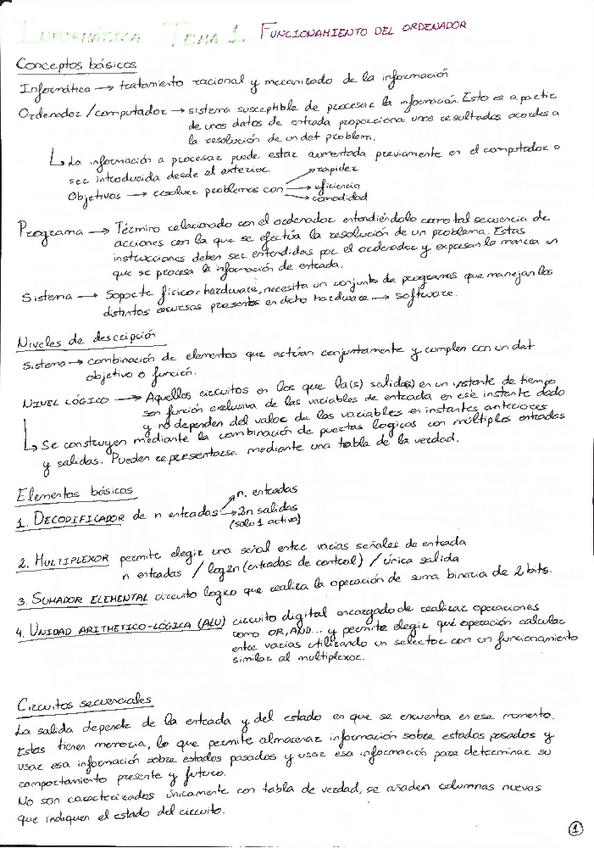 INFORMÁTICA TEMA 1 FUNCIONAMIENTO DEL ORDENADOR
Conceptos básicos
Informática → tratamiento racional y mecanizado de la información
Ordenador / computador → sistema susceptible de procesar la información. Esto es a partir
de unos datos de entrada proporciona unos resultados acordes a
la resolución de un dat problem.
↳ La información a procesar puede estar aumentada previamente en el computador o
ser introducida desde el exterior.
→ rapidez
Objetivos → resolver problemas con → eficiencia
→ comodidad
Programa → Término relacionado con el ordenador entendiéndolo como tal secuencia de
acciones con la que se efectúa la resolución de un problema. Estas
instrucciones deben ser entendidas por el ordenador y expresan la manera en
que se procesa la información de entrada.
Sistema → Soporte físico = hardware, necesita un conjunto de programas que manejan los
distintos recursos presentes en dicho hardware → software.
Niveles de descripción
Sistema → combinación de elementos que actúan conjuntamente y cumplen con un dat
objetivo o función.
NIVEL LÓGICO → Aquellos circuitos en los que la(s) salida(s) en un instante de tiempo
son función exclusiva de las variables de entrada en ese instante dado
y no dependen del valor de las variables en instantes anteriores
↳ Se construyen mediante la combinación de puertas lógicas con múltiples entradas
y salidas. Pueden representarse mediante una tabla de la verdad.
Elementos básicos
→ n. entradas
1. DECODIFICADOR de n entradas → 2n salidas
(solo 1 activo)
2. MULTIPLEXOR permite elegir una señal entre varias señales de entrada
n entradas / log2n (entradas de control) / única salida
3. SUMADOR ELEMENTAL circuito logico que realiza la operación de suma binaria de 2 bits.
4. UNIDAD ARITHETICO-LÓGICA (ALU) circuito digital encargado de realizar operaciones
como OR, AND... y permite elegir qué operación calcular
entre varias utilizando un selector con un funcionamiento
similar al multiplexor.
Circuitos secuenciales
La salida depende de la entrada y del estado en que se encuentra en ese momento.
Estos tienen memoria, lo que permite almacenar información sobre estados pasados y
usar esa información sobre estados pasados y usar esa información para determinar su
comportamiento presente y futuro.
No son caracterizados únicamente con tabla de verdad, se añaden columnas nuevas
que indiquen el estado del circuito.
1